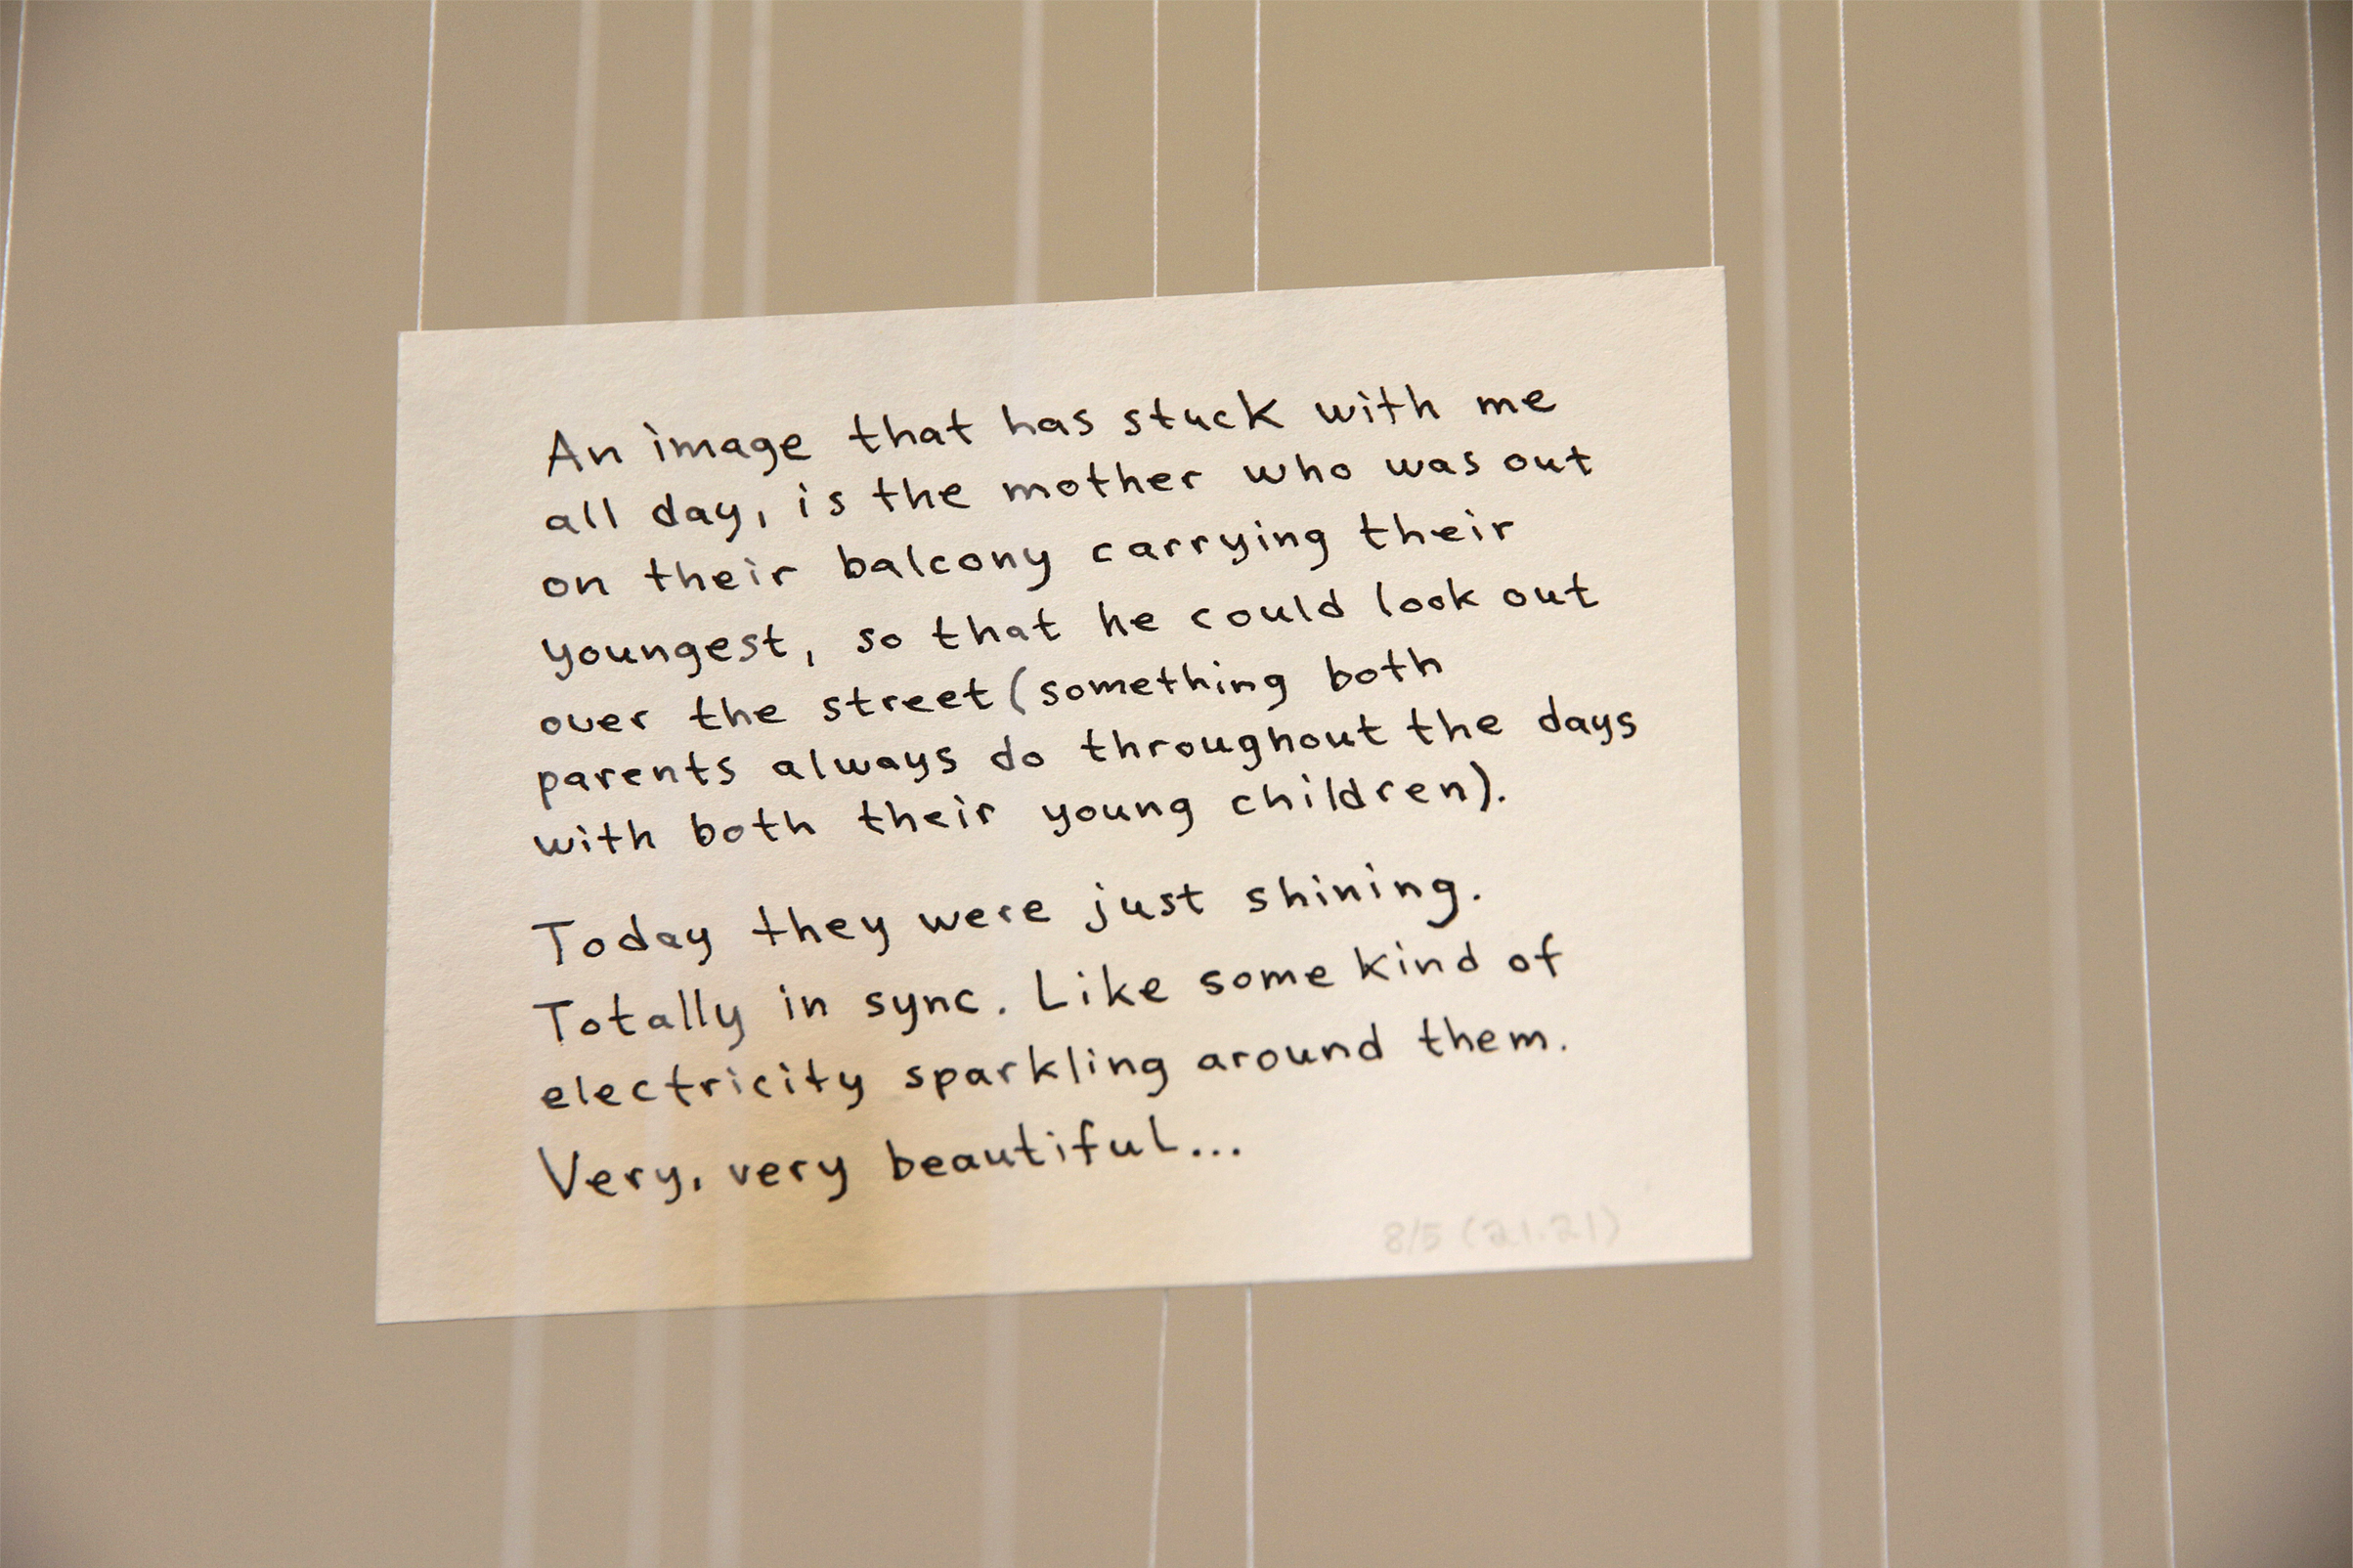 An image that has stuck with me
all day, is the mother who was out
on their balcony carrying their
youngest, so that he could look out
over the street (something both
parents always do throughout the days
with both their young children).
Today they were just shining.
Totally in sync. Like some kind of
electricity sparkling around them.
Very, very beautiful...
8/5 (21.21)